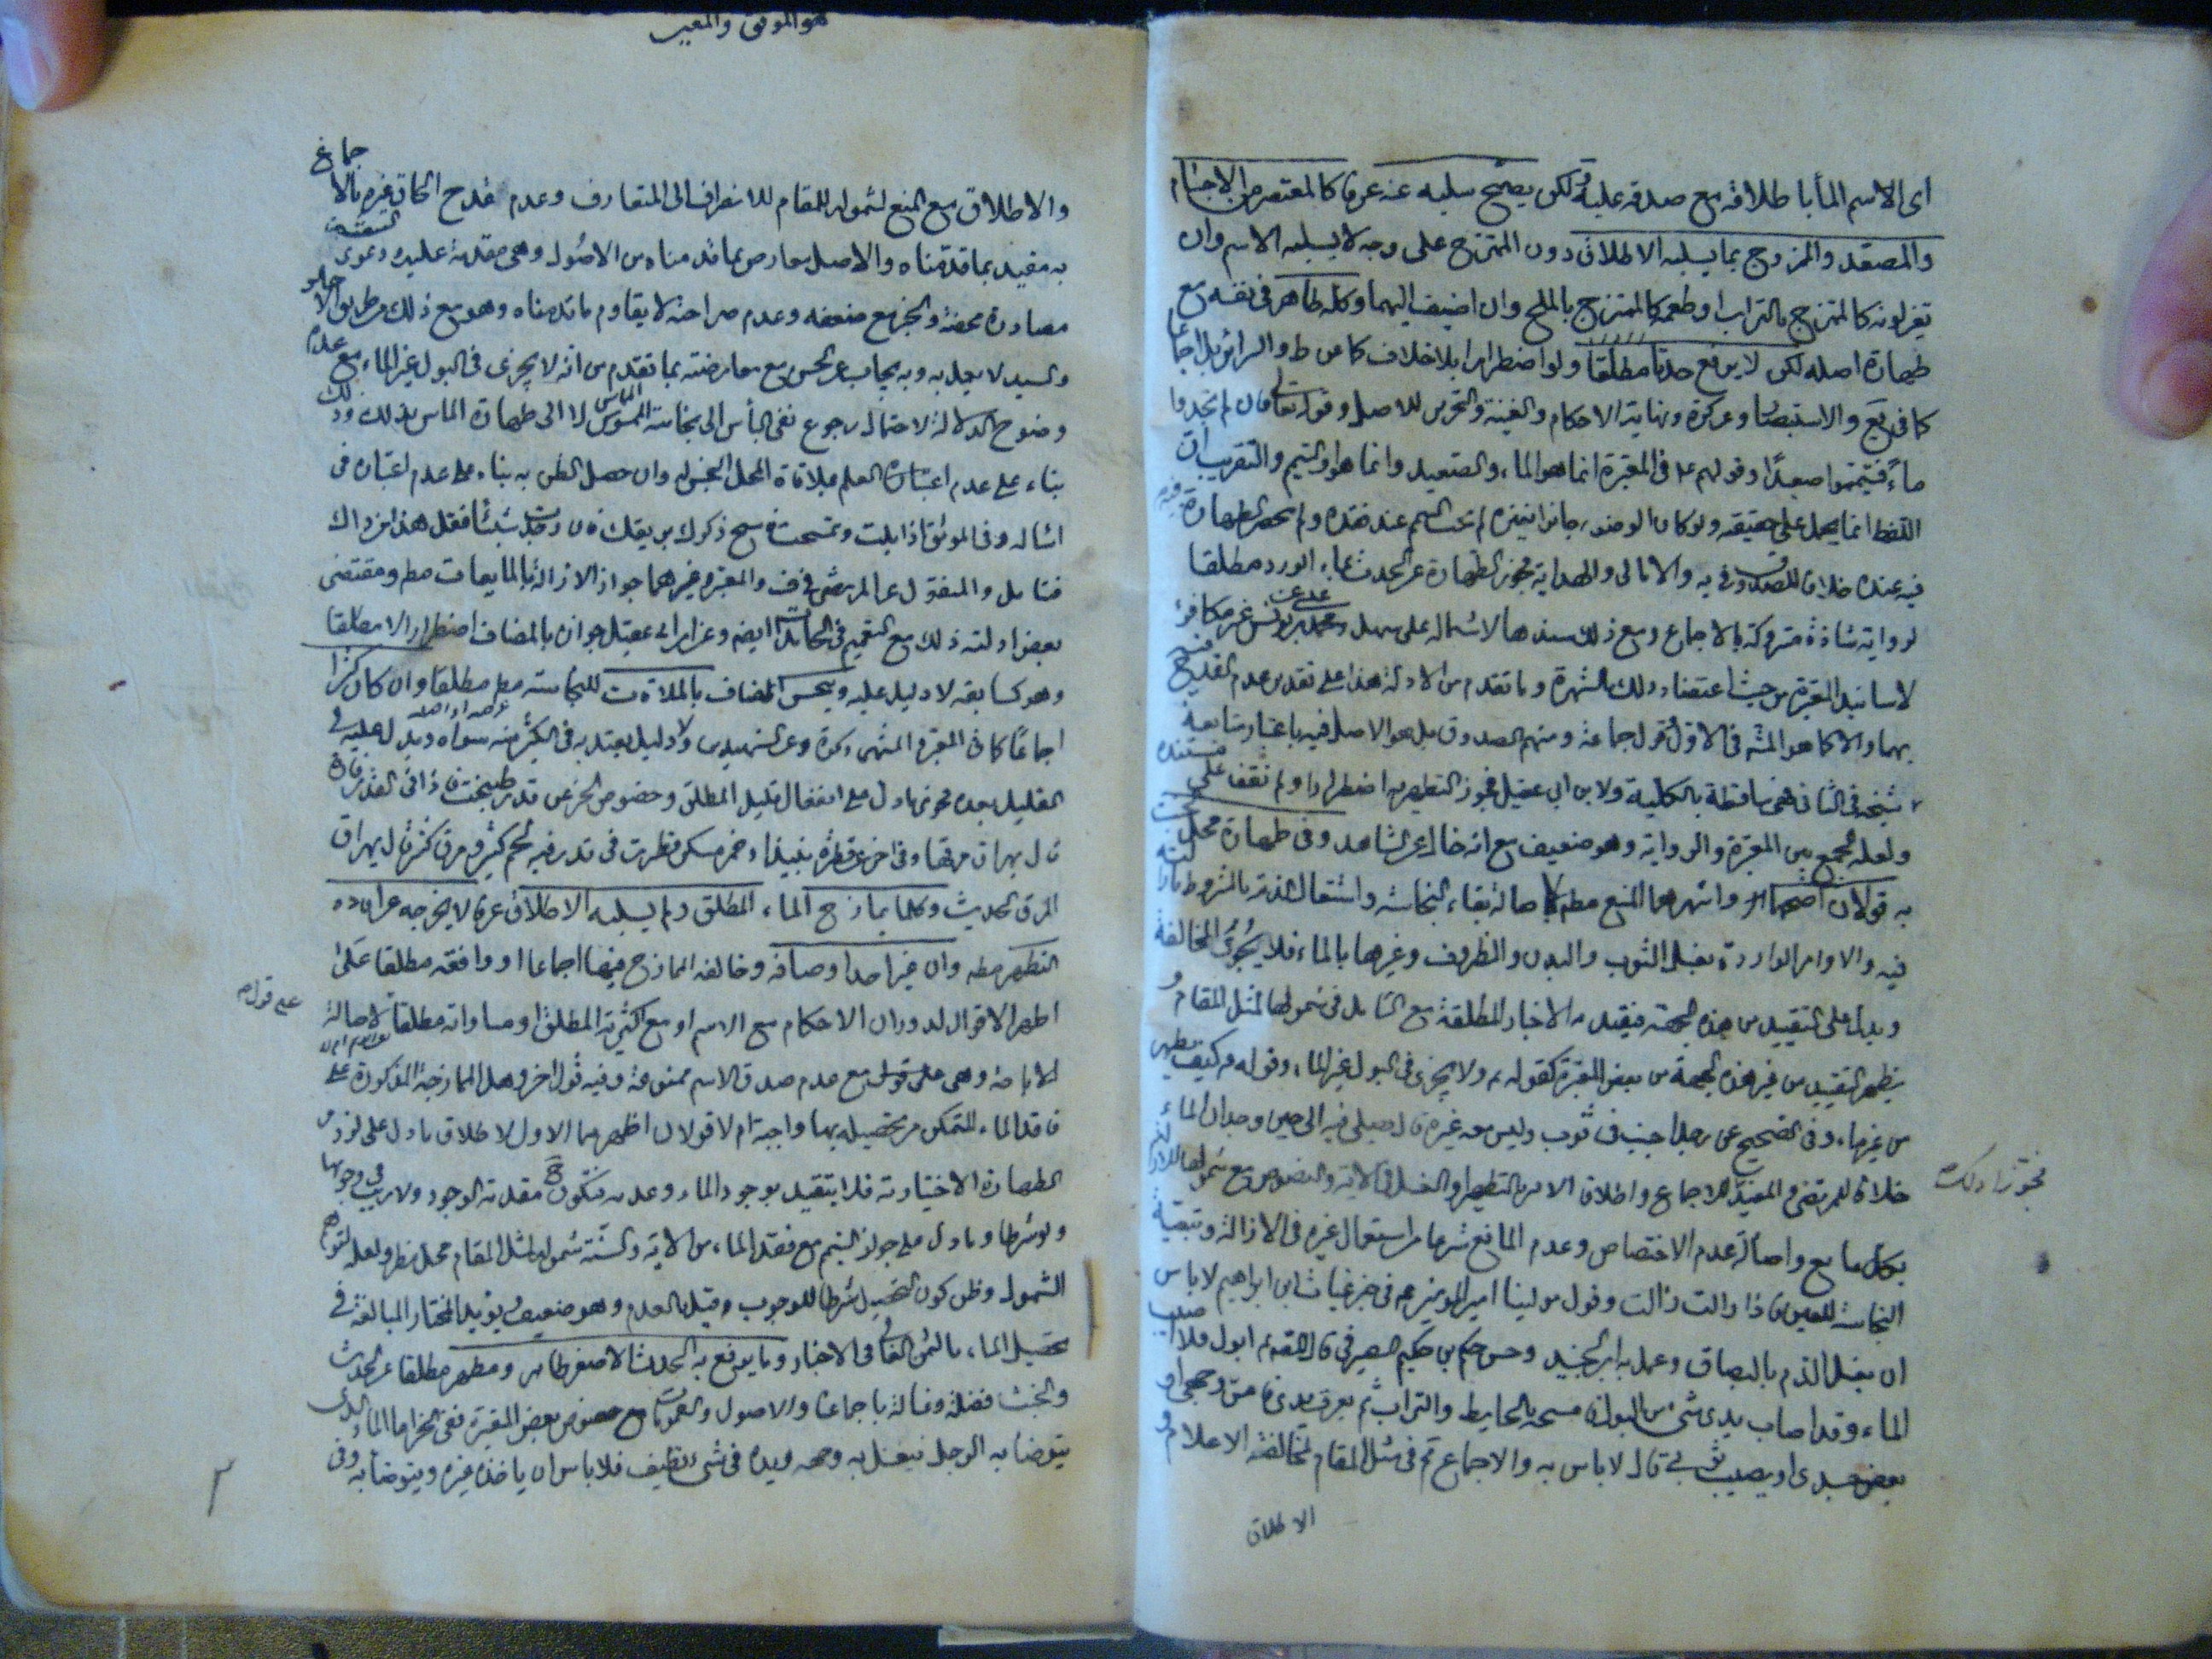 اى الاسم الماء باطلاقه مع صدقه عليه لكن يصح سلبه عنه عرفا كالمعتصر من الاجسام
والمصعد والممزوج بما يسلبه الاطلاق دون الممتزج على وجه لا يسلبه الاسم وان
تغير لونه كالممتزج بالتراب او طعمه كالممتزج بالملح وان اضيف اليهما وكله طاهر فى نفسه مع
طهارة اصله لكن لا يرفع حدثا مطلقا ولو اضطرارا بلا خلاف كما عن ط والسرائر بل اجماعا
كما فى يع والاستبصار وعن كرة ونهاية الاحكام والغنية والتحرير للاصل وقوله تعالى فان لم تجدوا
ماء فتيمموا صعيدا وقولهم ع فى المعتبرة انما هو الماء والصعيد وانما هو الماء والتيمم والتقريب ان
اللفظ انما يحمل على حقيقته ولو كان الوضوء جائزا بغيره لم يجب التيمم عند فقده ولم تنحصر الطهارة
فيه عنده خلافا للصدوق فى يه والامالى والهداية فجوز الطهارة عن الحدث بماء الورد مطلقا
لرواية شاذة متروكة بالاجماع ومع ذلك سندها لاشتماله على سهل ومحمد بن عيسى عن يونس غير مكافؤ
لاسانيد المعتبرة من حيث اعتضاد تلك بالشهرة وما تقدم من الادلة هذا على تقدير عدم القدح
بهما والا كما هو المشهور فى الاول وقول جماعة ومنهم الصدوق بل هو الاصل فيه باعتبار متابعة
شيخه فى الثانى فهى ساقطة بالكلية ولابن ابى عقيل فجوز التطهير به اضطرارا ولم نقف على مستنده
ولعله للجمع بين المعتبرة والرواية وهو ضعيف مع انه خال عن الشاهد وفى طهارة محل الخبث
به قولان اصحهما واشهرهما المنع مطلقا لاصالة بقاء النجاسة واشتغال الذمة بالمشروط بازالته
فيه والاوامر الواردة بغسل الثوب والبدن والظروف وغيرها بالماء فلا يجوز المخالفة
ويدل على التقييد من هذه الجهة فيقيد به الاخبار المطلقة مع التامل فى شمولها لمثل المقام و
يظهر التقييد من غير هذه الجهة من بعض المعتبرة كقوله ع ولا يجزى فى البول غير الماء وقوله ع كيف يطهر
من غيرماء وفى الصحيح عن رجل اجنب فى ثوب وليس معه غيره قال يصلى فيه الى حين وجدان الماء
خلافا للمرتضى والمفيد للاجماع واطلاق الامر بالتطهير والغسل فى الاية والنصوص مع شمولها للازالة
بكل مايع واصالة عدم الاختصاص وعدم المانع شرعا من استعمال غيره فى الازالة وتبعية
النجاسة للعين فاذا زالت زالت وقول مولينا امير المؤمنين ع فى خبر غياث بن ابراهيم لا باس
ان يغسل الدم بالبصاق وعمل به ابن الجنيد وحسن حكم بن حكيم الصيرفى قال للصادق ع ابول فلا اصيب
الماء وقد اصاب يدى شىء من البول فامسحه بالحايط والتراب ثم يعرق يدى فامس وجهى او
بعض جسدى او يصيب ثوبى قال لا باس به والاجماع ثم فى مثل المقام لمخالفة الاعلام و
الاطلاق
هو الموفق والمعين
والاطلاق مع المنع لشموله للمقام للانصراف الى المتعارف وعدم قدح الحاق غيره بالاجماع
به مفيد بما قدمناه والاصل معارض بما قدمناه من الاصول وهى مقدمة عليه ودعوى التبعية
مصادرة محضة والخبر مع ضعفه وعدم صراحته لا يقاوم ما قدمناه وهو مع ذلك
والسيد لا يعمل به وبه يجاب عن الحسن مع معارضته بما تقدم من انه لا يجزى فى البول غير الماء مع عدم
وضوح الدلالة لاحتمال رجوع نفى الباس الى نجاسة الممسوس لا الى طهارة الماس
بناء على عدم اعتبار العلم بملاقاة المحل النجس له وان حصل الظن به بناء على عدم اعتباره فى
امثاله وفى الموثق اذا بلت وتمسحت فامسح ذكرك بريقك فان وجدت شيئا فقل هذا من ذاك
فتامل والمنقول عن المرتضى فى ف والمعتبر وغيرهما جواز الازالة بالمايعات مطلقا ومقتضى
بعض ادلته ذلك مع التعميم فى الجامدات ايضا وعن ابن ابى عقيل جوازه بالمضاف اضطرارا لا مطلقا
وهو كسابقه لا دليل عليه وينجس المضاف بالملاقات للنجاسة مطلقا وان كان كثيرا
اجماعا كما فى المعتبر والمنتهى وكرة وعن الشهيدين ولا دليل يعتد به فى الكثير منه سواه ويدل عليه فى
القليل بعده فحوى ما دل على انفعال قليل المطلق وخصوص الخبر عن قدر طبخت فاذا فى القدر فارة
قال يهراق مرقها وفى اخر عن قطرة نبيذ او خمر مسكر قطرت فى قدر فيه لحم كثير ومرق كثير قال يهراق
المرق الحديث وكلما يمازج الماء المطلق ولم يسلبه الاطلاق عرفا لا يخرجه عن افادة
التطهير مطلقا وان غير احد اوصافه وخالفه الممازج فيها اجماعا او وافقه مطلقا على
اظهر الاقوال لدوران الاحكام مع الاسم او مع اكثرية المطلق او مساواته مطلقا لاصالة
الاباحة وهى على قول مع عدم صدق الاسم ممنوعة وفيه قول اخر وهل الممازجة المذكورة على
فاقد الماء المتمكن من تحصيله بها واجبة ام لا قولان اظهرهما الاول لاطلاق ما دل على لزوم
الطهارة الاختيارية فلا يتقيد بوجود الماء وعدمه فتكون مقدمة الوجود ولا ريب فى وجوبها
ولو شرطا وما دل على جواز التيمم مع فقد الماء من الاية والسنة شموله لمثل المقام محل نظر ولعله لتوهم
الشمول وظن كون التحصيل شرطا للوجوب وقيل بالعدم وهو ضعيف ويؤيد المختار المبالغة فى
تحصيل الماء بالثمن الغالى فى الاخبار وما يرفع به الحدث الاصغر طاهر ومطهر مطلقا عن الحدث
والخبث فضلة وغسالة باجماعنا والاصول والعمومات مع خصوص بعض المعتبرة ففى الخبر اما الماء الذى
يتوضا به الرجل فيغسل به وجهه ويده فى شىء نظيف فلا باس ان ياخذه غيره ويتوضا به وفى